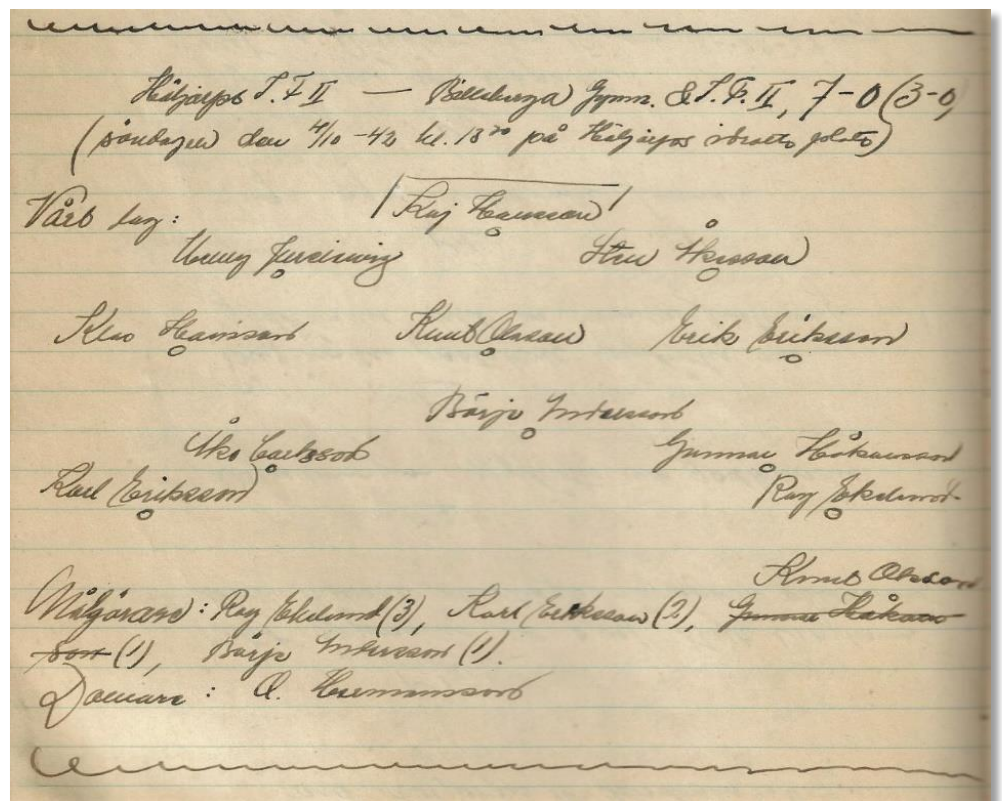 Häljarps I. F. II — Billeberga Gymn. & I. F. II, 7-0 (3-0)
(söndagen den 4/10 -42 kl. 13³⁰ på Häljarps idrottsplats)
Vårt lag: Kaj Hansson
Sten Åkesson
Klas Hansson Knut Olsson Erik Eriksson
Börje Andersson
Åke Carlsson Gunnar Håkansson
Karl Eriksson Roy Ekelund
Knut Olsson
Målgörare: Roy Ekelund (3), Karl Eriksson (2), Gunnar Håkans-
son (1), Börje Andersson (1).
Domare: O. Hermansson